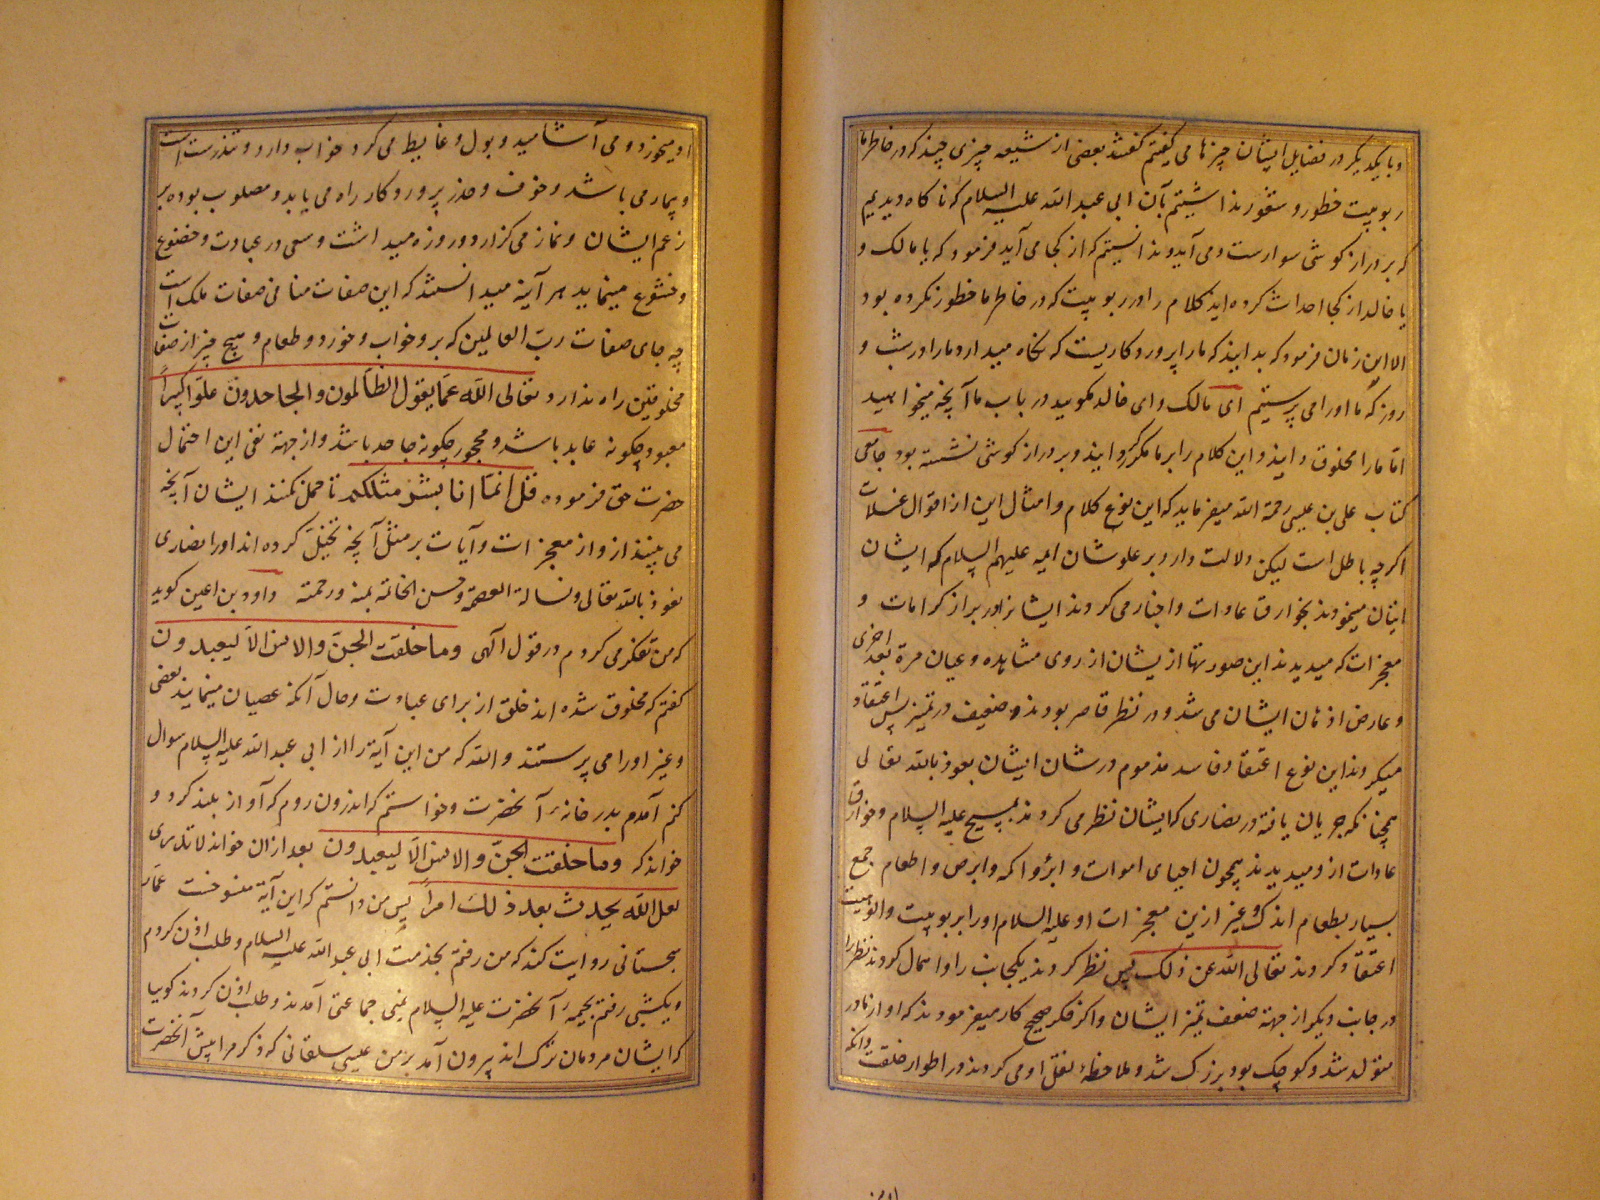 و با یکدیگر در فضایل ایشان چیزها می گفتیم گفتند بعضی از شیعه چیزی چند که در خاطر ما
ربوبیت خطور و شعور نداشتیم بآن ابی عبد الله علیه السلام که ناکاه دیدیم
که بر دراز کوشی سوارست و می آید و ندانستیم که از کجا می آید فرمود که یا مالک و
یا خالد از کجا احداث کرده اید کلام را در ربوبیت که در خاطر ما خطور نکرده بود
الا این زمان فرمود که بدانید که ما را پروردکاریست که نکاه میدارد ما را در شب و
روز که ما او را می پرستیم ای مالک و ای خالد بگویید در باب ما آنچه میخواهید
اما ما را مخلوق دانید و این کلام را بر ما مکرر کردانید و بر دراز کوشی نشسته بود جامع
کتاب علی بن عیسی رحمة الله میفرماید که این نوع کلام و امثال این از اقوال غلات
اگرچه باطل است لیکن دلالت دارد بر علو شان ایمه علیهم السلام که ایشان
اتیان مینمودند بخوارق عادات و اخبار می کردند ایشان را در برابر از کرامات و
معجزات که میدیدند این صورتها از یشان از روی مشاهده و عیان مرة بعد اخری
و عارض اذهان ایشان می شد و در نظر قاصر بودند و ضعیف در تمیز پس اعتقاد
میکردند این نوع اعتقاد فاسد مذموم در شان ایشان نعوذ بالله تعالی
همچنانکه جریان یافته در نصاری که ایشان نظر می کردند بمسیح علیه السلام و خوارق
عادات از و میدیدند همچون احیای اموات و ابرؤ اکمه و ابرص و اطعام جمع
بسیار بطعام اندک و غیر ازین معجزات او علیه السلام او را بربوبیت و الوهیت
اعتقاد کردند تعالی الله عن ذلک پس نظر کردند یکجانب را و اهمال کردند نظر را
در جانب دیگر از جهة ضعف تمیز ایشان و اگر فکر صحیح کار میفرمودند که او از مادر
متولد شد و کوچک بود بزرک شد و ملاحظهٔ نقل او می کردند در اطوار خلقت و آنکه
او میخورد و می آشامید و بول و غایط می کرد و خواب دارد و تندرست است
و بیمار می باشد و خوف و حذر پروردکار راه می یابد و مصلوب بوده بر
زعم ایشان و نماز می گزارد و روزه میداشت و سعی در عبادت و خضوع
و خشوع مینماید هر آینه میدانستند که این صفات منافی صفات ملک است
چه جای صفات رب العالمین که برو خواب و خورد و طعام و هیچ چیز از صفات
مخلوقین راه ندارد و تعالی الله عما یقول الظالمون و الجاحدون علوا کبیرا
معبود چکونه عابد باشد و مجور چکونه جاحد باشد و از جهة نفی این احتمال
حضرت حق فرموده قل انما انا بشر مثلکم تا حمل نکنند ایشان آنچه
می بینند از و از معجزات و آیات بر مثل آنچه تخیل کرده اند اورا نصاری
نعوذ بالله تعالی و نساله العصمة و حسن الخاتمه بمنه و رحمته داود بن اعین کوید
که من تفکر می کردم در قول الهی وما خلقت الجن والانس الا لیعبدون
کفتم که مخلوق شده اند خلق از برای عبادت و حال آنکه عصیان مینمایند بعضی
و غیر اورا می پرستند و الله که من این آیة را از ابی عبد الله علیه السلام سوال
کنم آمدم بدر خانهٔ آنحضرت و خواستم که اندرون روم که آواز بلند کرد و
خواند که وما خلقت الجن والانس الا لیعبدون بعد ازان خواند لا تدری
لعل الله یحدث بعد ذلک امرا پس من دانستم که این آیة منسوخست عمار
سجستانی روایت کند که من رفتم بخدمت ابی عبد الله علیه السلام و طلب اذن کردم
و یکشبی رفتم بخیمهٔ آنحضرت علیه السلام بمنی جماعتی آمدند و طلب اذن کردند کوییا
که ایشان مردمان ترک اند بیرون آمد بر من عیسی سلقانی که ذکر مرا پیش آنحضرت